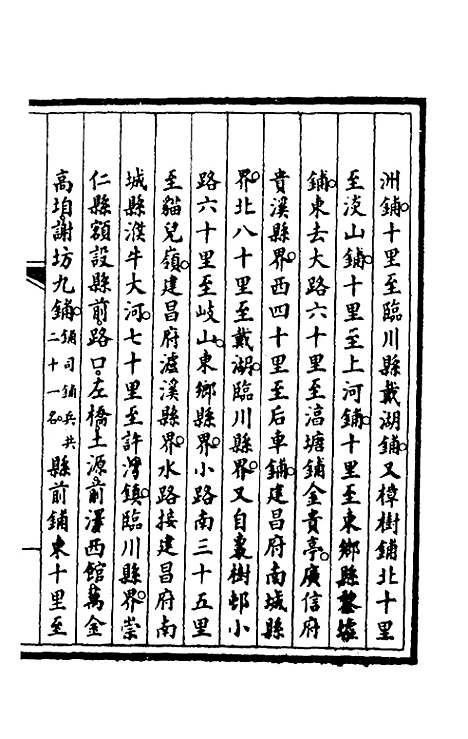 洲鋪十里至臨川縣戴湖鋪又樟樹鋪北十里
至淡山鋪十里至上河鋪十里至東鄉縣黎墟
鋪東去大路六十里至滈塘鋪金貴亭廣信府
貴溪縣界西四十里至后車鋪建昌府南城縣
界北八十里至戴湖臨川縣界又自棗樹邨小
路六十里至岐山東鄉縣界小路南三十五里
至貓兒嶺建昌府瀘溪縣界水路接建昌府南
城縣濮牛大河七十里至許灣鎮臨川縣界崇
仁縣額設縣前路口左橋土源前澤西館萬金
高垍謝坊九鋪鋪司鋪兵共二十一名縣前鋪東十里至